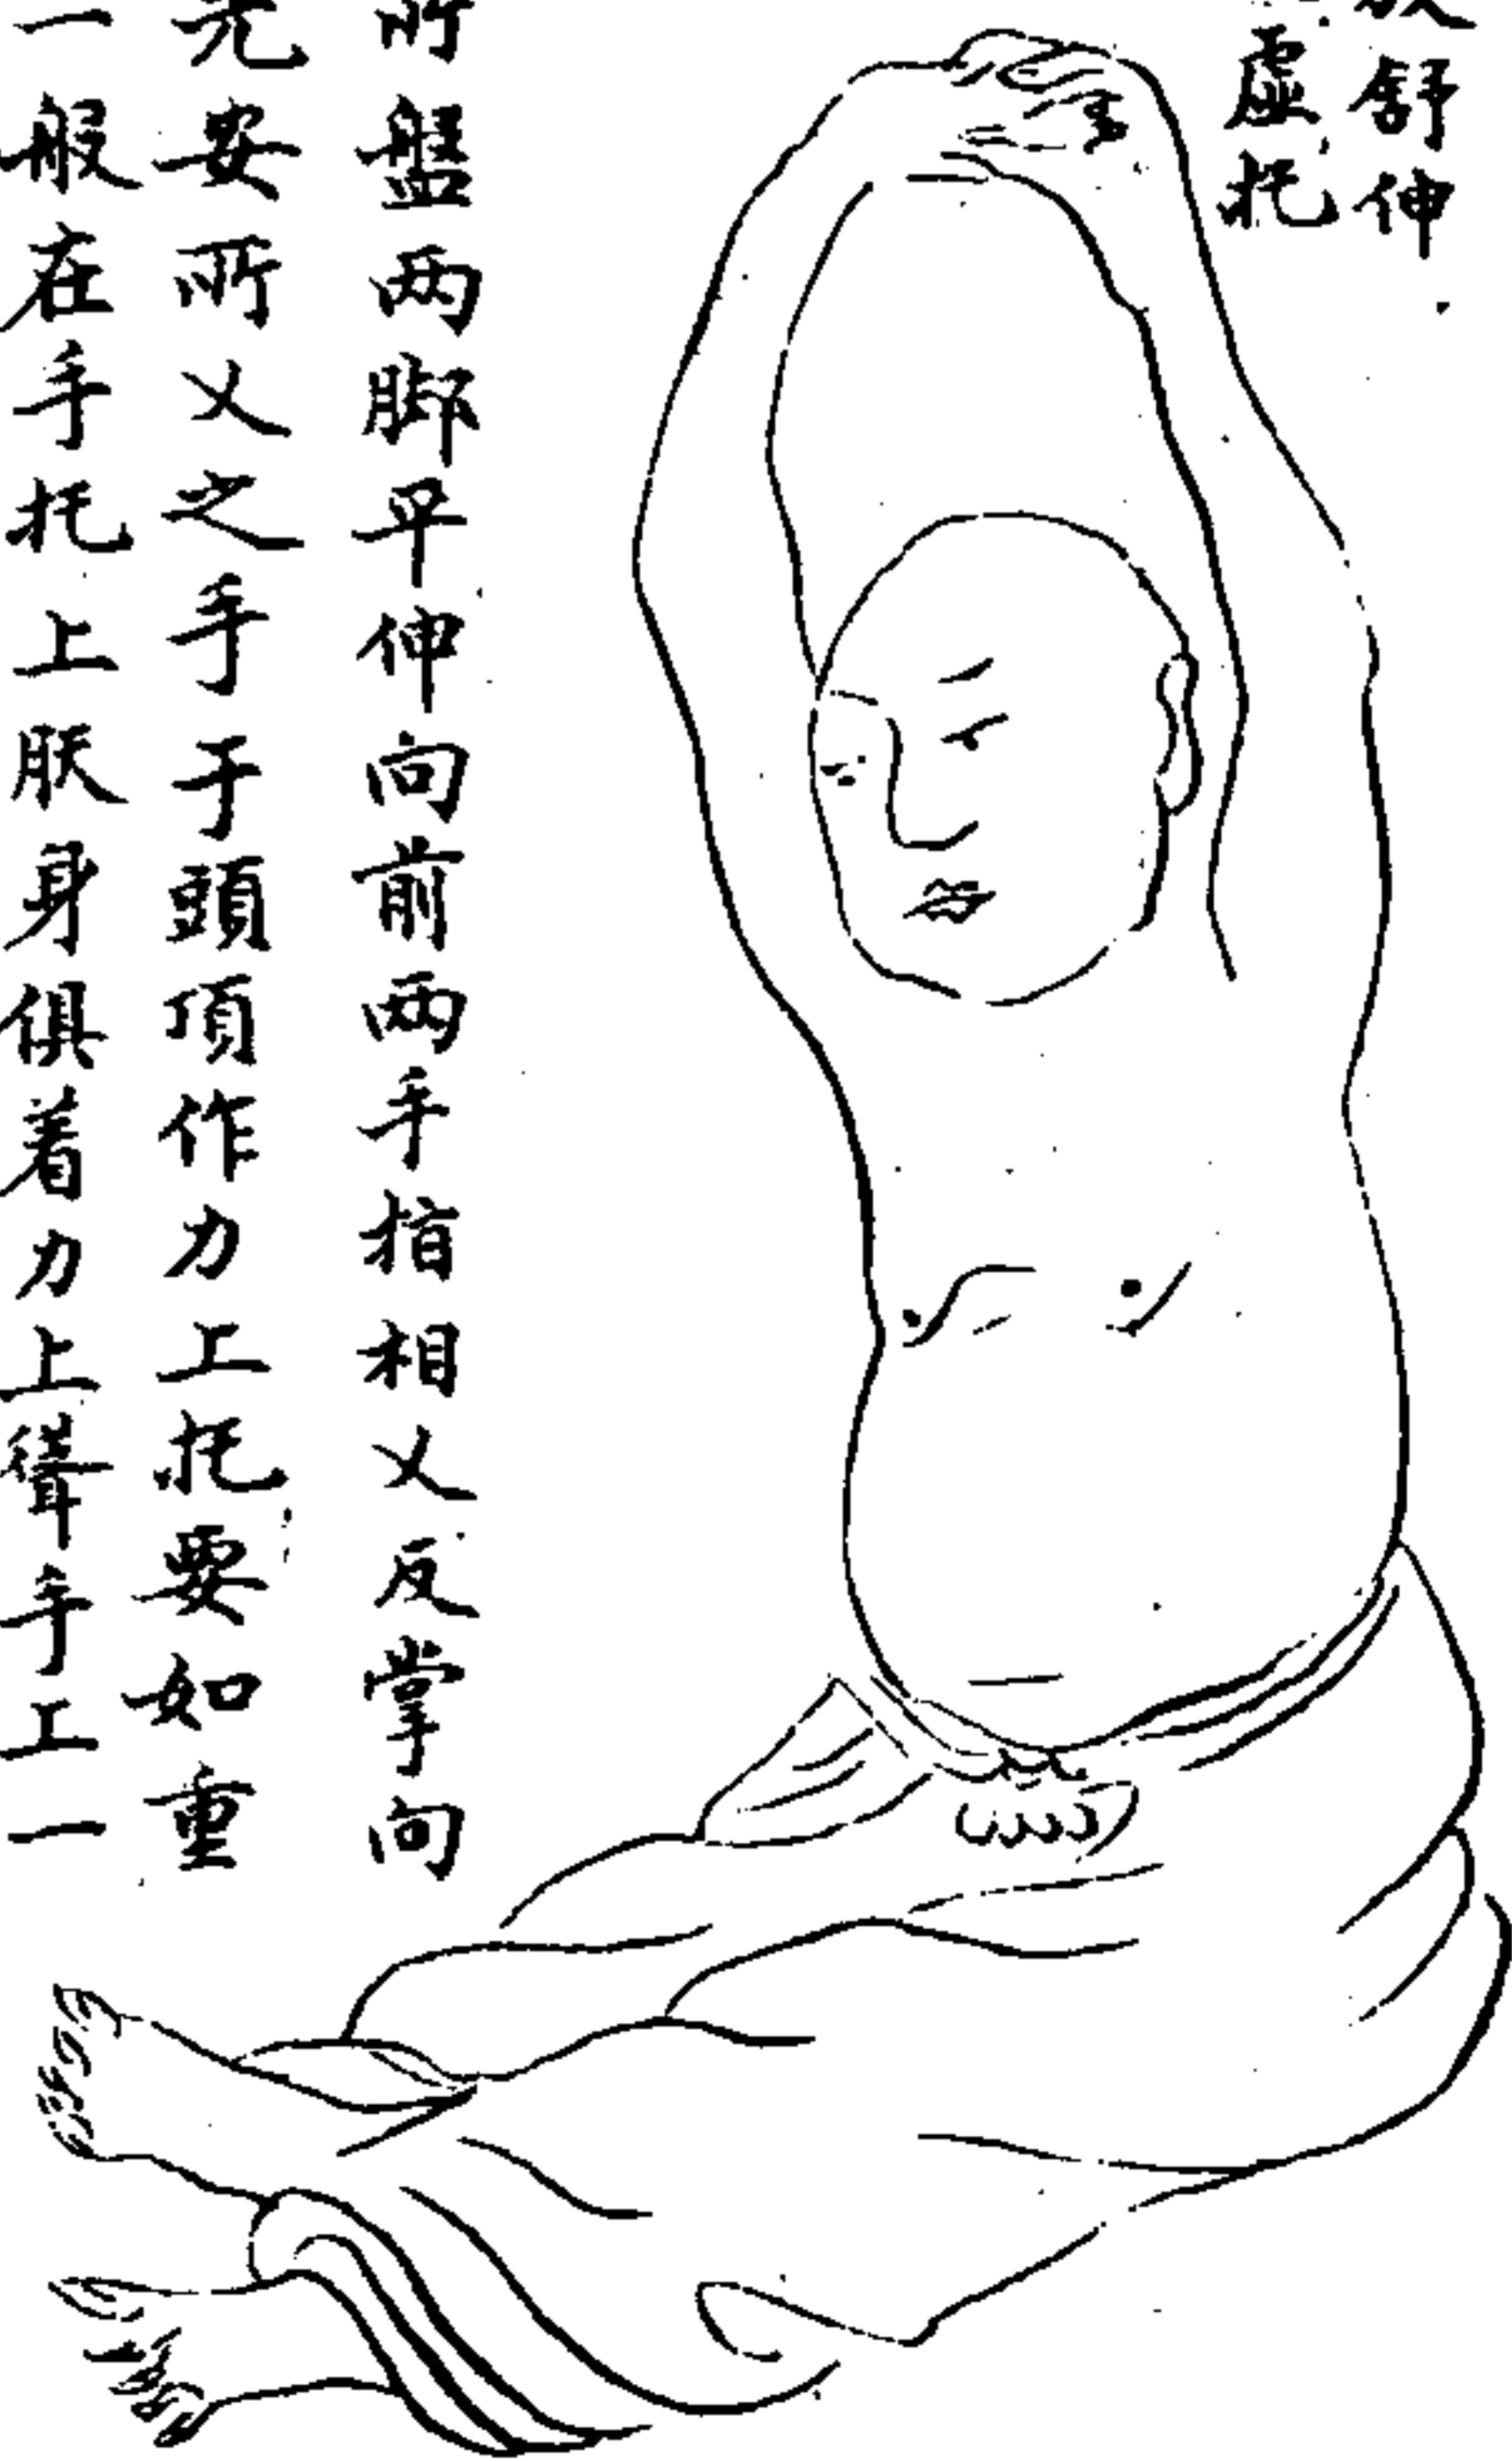 舒伸
虛托
所盤兩脚平伸向前兩手指相叉反掌向
先安所叉之手于頭頂作力上托要如重
一般在手托上身俱着力上聳手上一